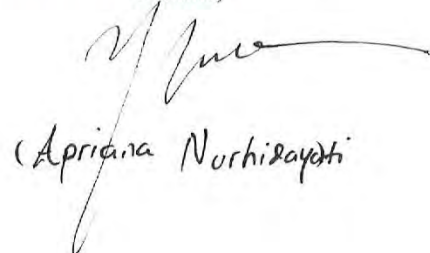 (Apriana Nurhidayati